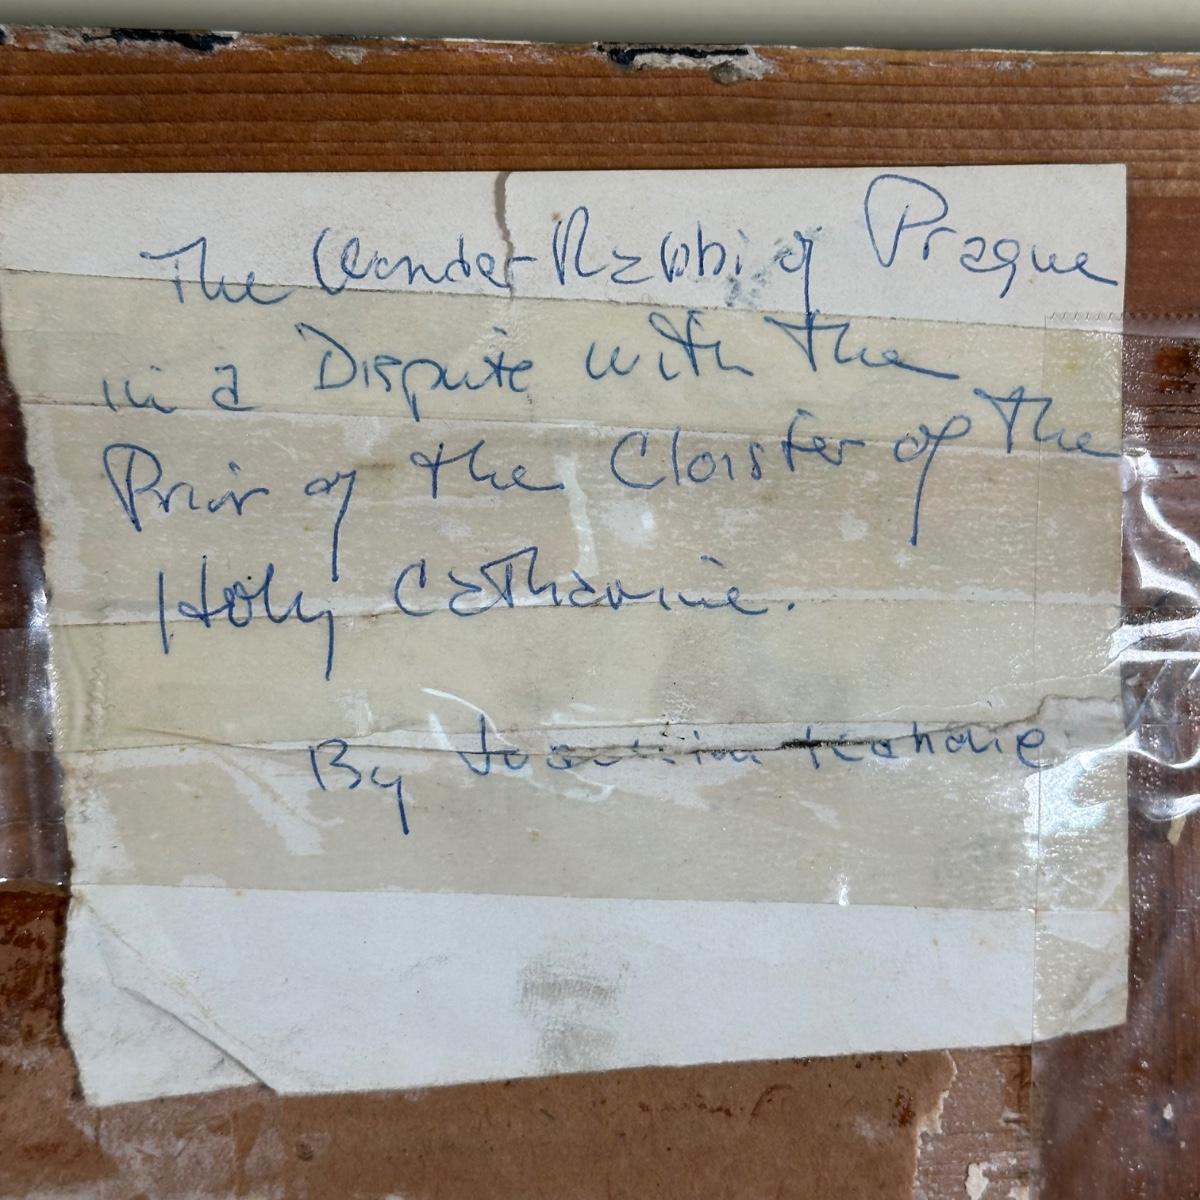 The Wonder-Rabbi of Prague
in a Dispute with the
Prior of the Cloister of the
Holy Catharine.
By Joachim